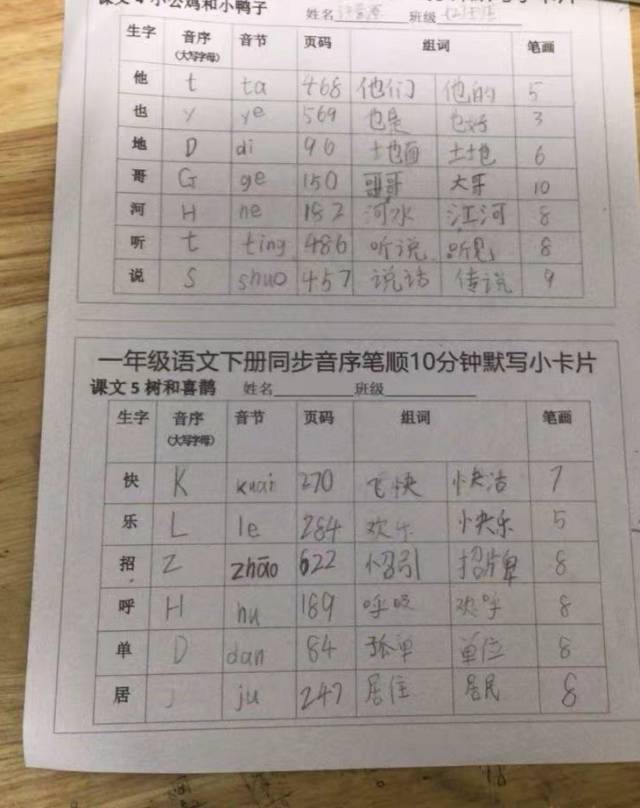 课文 4 小公鸡和小鸭子 姓名 班级
生字 音序 音节 页码 组词 笔画
(大写字母)
他 t ta 468 他们 他的 5
也 y ye 569 也是 也好 3
地 D di 96 土地面 土地 6
哥 G ge 150 哥哥 大哥 10
河 H he 182 河水 江河 8
听 t ting 486 听说 听见 8
说 S shuo 457 说话 传说 9
一年级语文下册同步音序笔顺10分钟默写小卡片
课文 5 树和喜鹊 姓名 班级
生字 音序 音节 页码 组词 笔画
(大写字母)
快 K kuai 270 飞快 快活 7
乐 L le 284 欢乐 快乐 5
招 Z zhāo 622 招引 招牌 8
呼 H hu 189 呼吸 欢呼 8
单 D dan 84 孤单 单位 8
居 J ju 247 居住 居民 8